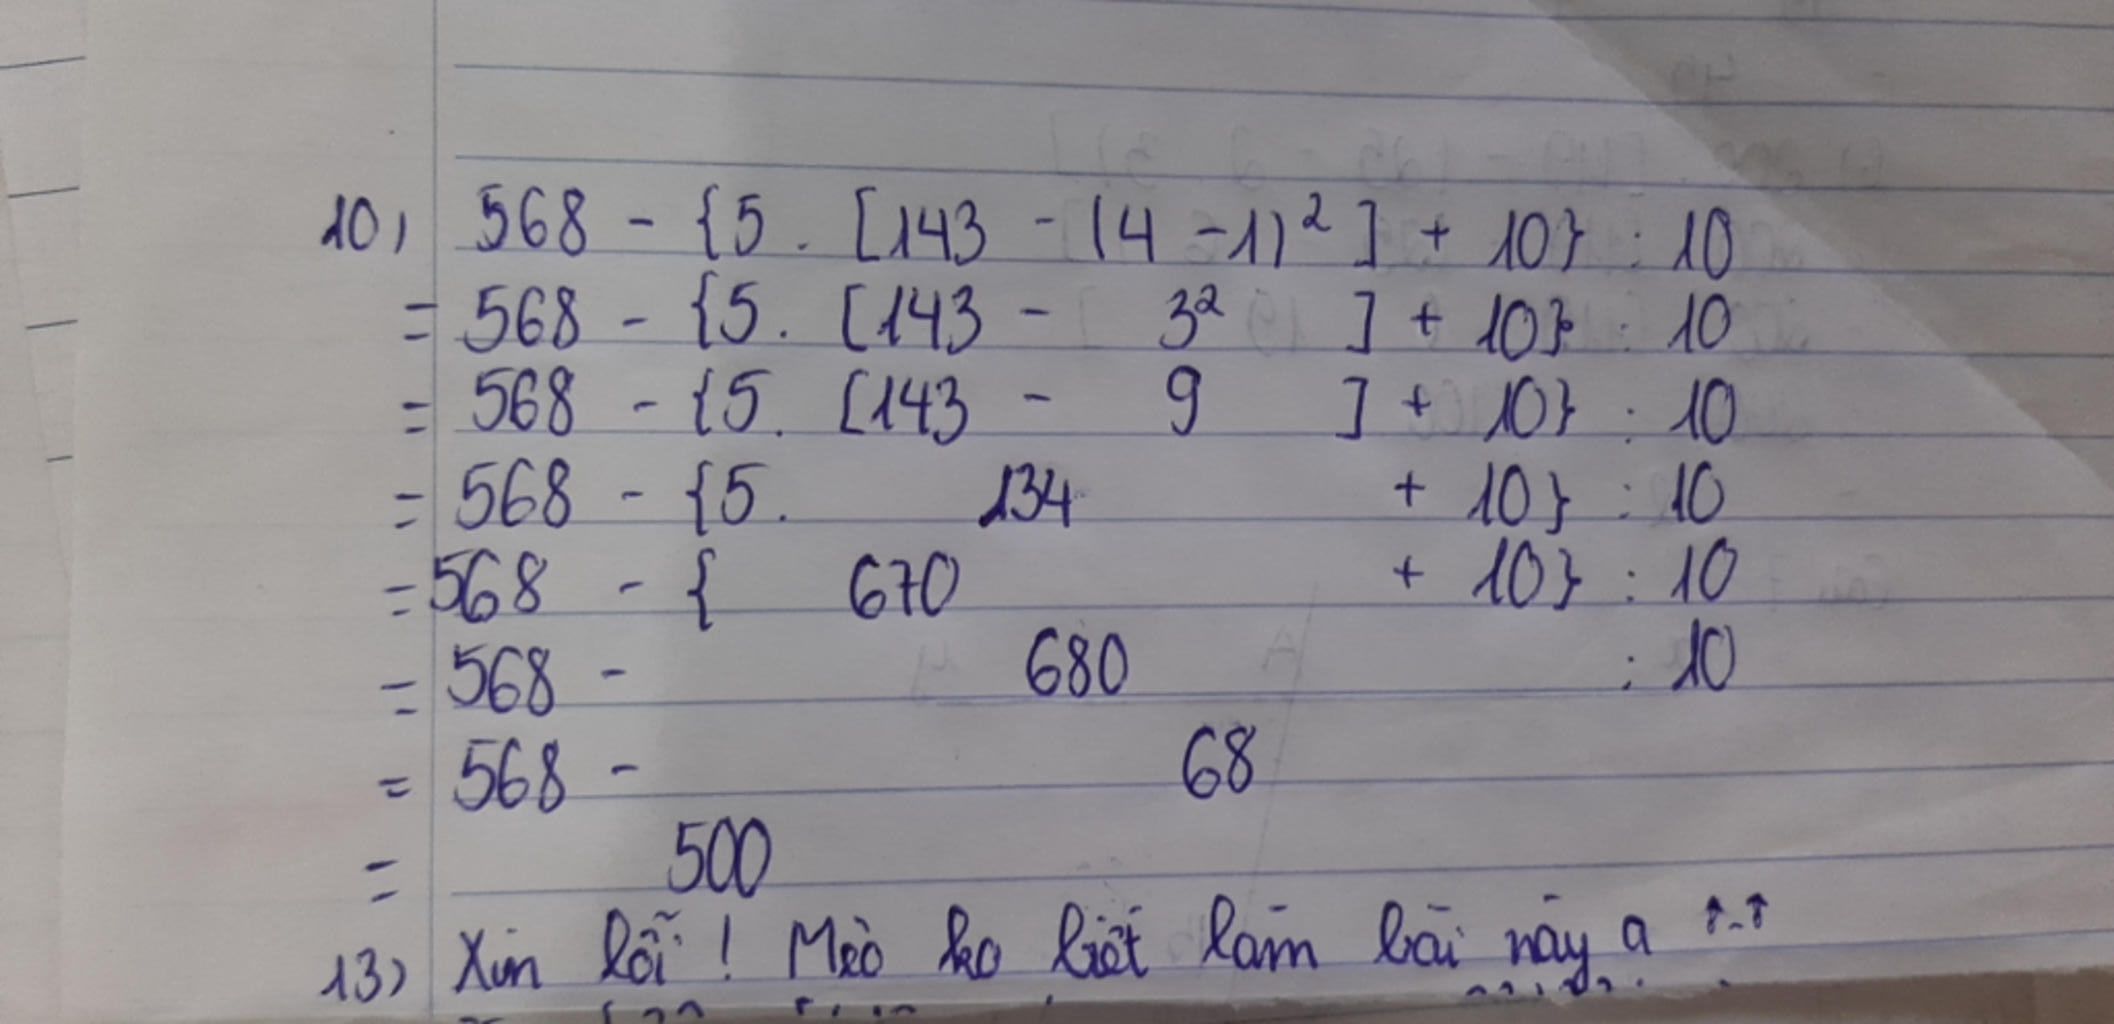 10) 568 - {5 . [143 - (4 - 1)² ] + 10} : 10
= 568 - {5 . [143 - 3² ] + 10} : 10
= 568 - {5 . [143 - 9 ] + 10} : 10
= 568 - {5 . 134 + 10} : 10
= 568 - { 670 + 10} : 10
= 568 - 680 : 10
= 568 - 68
= 500
13) Xin lỗi ! Mèo ko biết làm bài này ạ ↑-↑